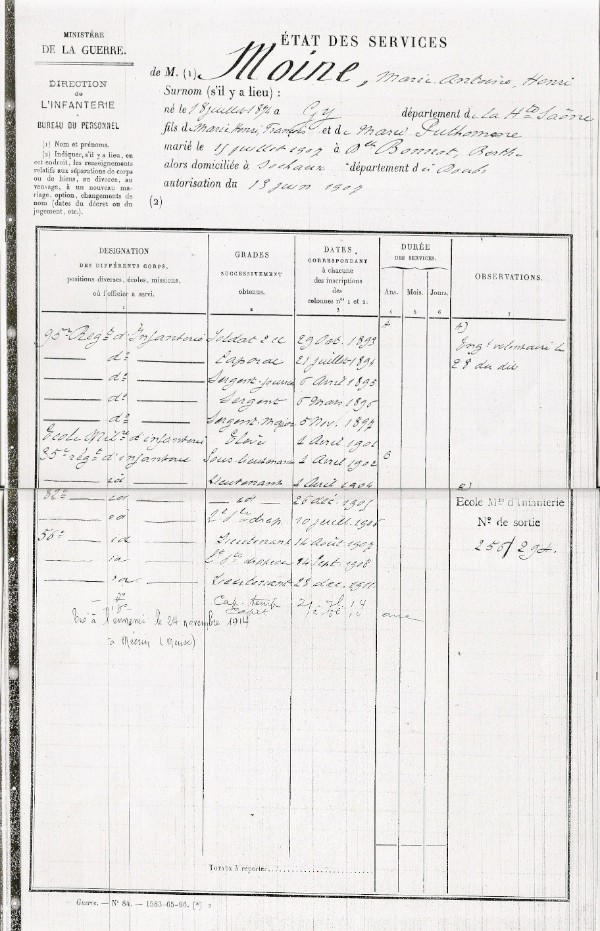 MINISTÈRE
DE LA GUERRE.
DIRECTION
de
L'INFANTERIE
BUREAU DU PERSONNEL
(1) Nom et prénoms.
(2) Indiquer, s'il y a lieu, en
cet endroit, les renseignements
relatifs aux séparations de corps
ou de biens, en divorce, au
veuvage, à un nouveau ma-
riage, option, changements de
nom (dates du décret ou du
jugement, etc.).
ÉTAT DES SERVICES
de M. (1) Moine, Marie Antoine, Henri
Surnom (s'il y a lieu) :
né le 18 juillet 1874 à Gy département de la Hte Saône
fils de Marie Henri François et de Marie
marié le 15 juillet 1907 à Dlle Bonnot, Berthe
alors domiciliée à Sochaux département du Doubs
autorisation du 13 juin 1907
(2)
DÉSIGNATION
DES DIFFÉRENTS CORPS,
positions diverses, écoles, missions,
où l'officier a servi.
1
GRADES
SUCCESSIVEMENT
obtenus.
2
DATES
CORRESPONDANT
à chacune
des inscriptions
des
colonnes nos 1 et 2.
3
DURÉE
DES SERVICES.
Ans. Mois. Jours.
4 5 6
OBSERVATIONS.
7
95me Regt d'Infanterie Soldat 2e cl 29 Oct. 1893
Engt volontaire le
28 du dit
do Caporal 21 juillet 1894
do Sergent fourrier 6 Avril 1895
do Sergent 6 Mars 1896
do Sergent Major 5 Nov. 1897
Ecole Milre d'infanterie Elève 1 Avril 1901
35e régt d'infanterie Sous-lieutenant 1 Avril 1902
id Lieutenant 1 Avril 1904
82e id id 26 déc. 1905
Ecole Mre d'Infanterie
No de sortie
256/294.
id Lt Pte drap. 10 juill. 1906
56e id Lieutenant 14 Août 1907
id Lt Pte drapeau 24 Sept 1908
id Lieutenant 28 déc. 1911
Cap. temp.
Capne
Tué à l'ennemi le 24 novembre 1914
à Mécrin (Meuse)
TOTAUX à reporter
Guerre. — No 84. — 1583-65-96. [*] 2